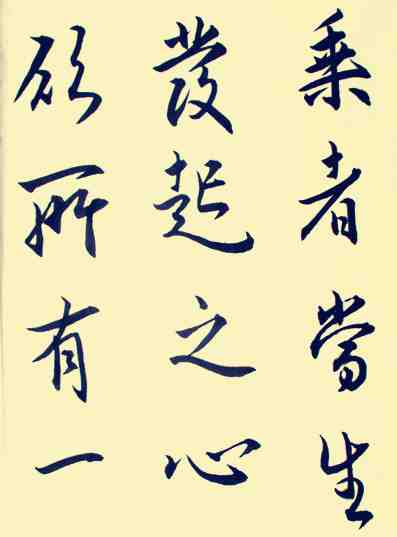 乘者當生
發起之心
所有一